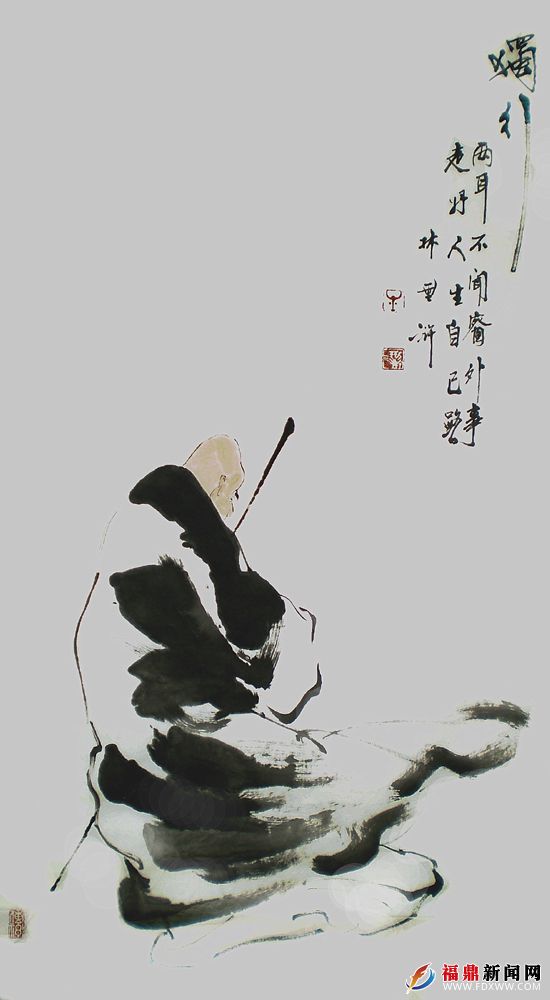 獨行
两耳不闻窗外事
走好人生自己路
福鼎新闻网
WWW.FDXWW.COM